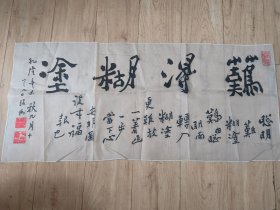 難得糊塗
聰明
難
糊塗
難由聰
明而
轉入
糊塗
更難放
一著退
一步
當下心
安非圖
後来福
報也
乾隆辛未秋九月十